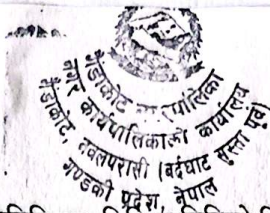 गैंडाकोट नगरपालिका
नगर कार्यपालिकाको कार्यालय
गैंडाकोट, नवलपरासी (बर्दघाट सुस्ता पूर्व)
गण्डकी प्रदेश, नेपाल